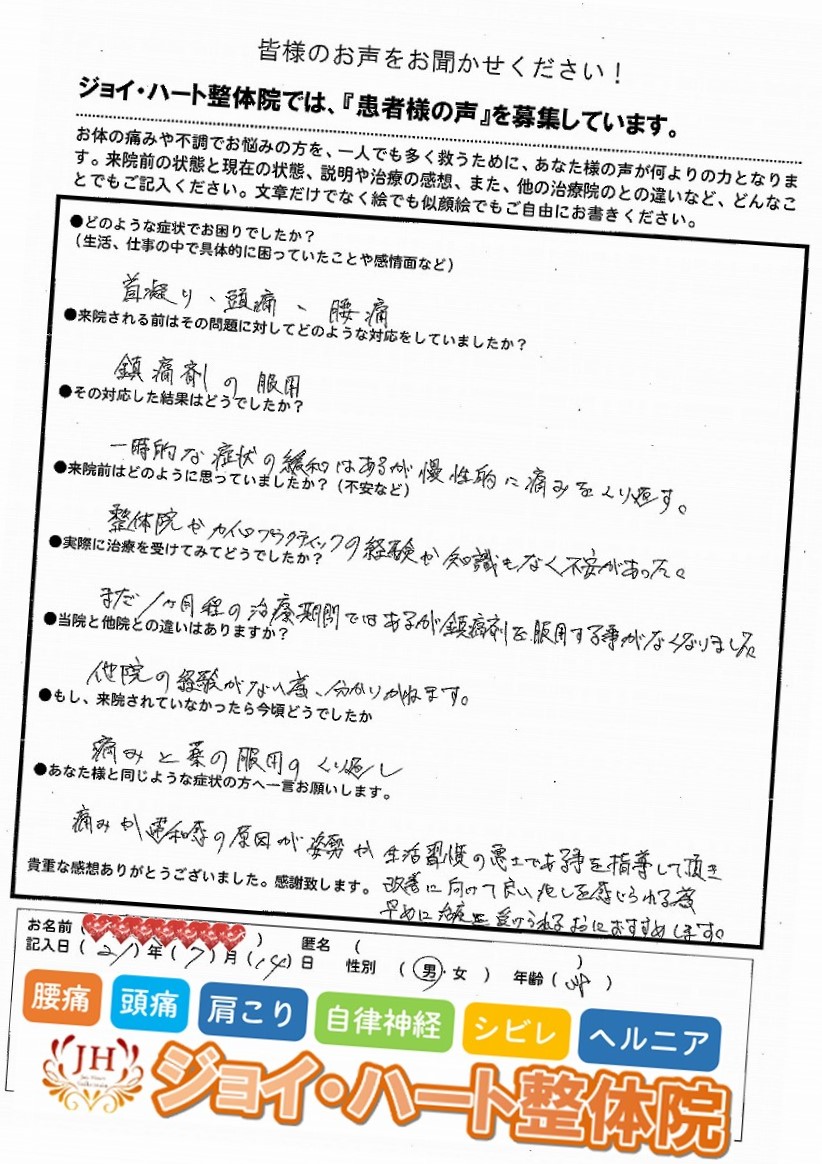 皆様のお声をお聞かせください！
ジョイ・ハート整体院では、『患者様の声』を募集しています。
お体の痛みや不調でお悩みの方を、一人でも多く救うために、あなた様の声が何よりの力となりま
す。来院前の状態と現在の状態、説明や治療の感想、また、他の治療院のとの違いなど、どんなこ
とでもご記入ください。文章だけでなく絵でも似顔絵でもご自由にお書きください。
●どのような症状でお困りでしたか？
（生活、仕事の中で具体的に困っていたことや感情面など）
首凝り、頭痛、腰痛
●来院される前はその問題に対してどのような対応をしていましたか？
鎮痛剤の服用
●その対応した結果はどうでしたか？
一時的な症状の緩和はあるが慢性的に痛みをくり返す。
●来院前はどのように思っていましたか？（不安など）
整体院やカイロプラクティックの経験や知識もなく不安があった。
●実際に治療を受けてみてどうでしたか？
まだ1ヶ月程の治療期間ではあるが鎮痛剤を服用する事がなくなりました
●当院と他院との違いはありますか？
他院の経験がない為、分かりかねます。
●もし、来院されていなかったら今頃どうでしたか
痛みと薬の服用のくり返し
●あなた様と同じような症状の方へ一言お願いします。
痛みや違和感の原因が姿勢や生活習慣の悪さである事を指導して頂き
改善に向けて良い兆しを感じられる為
早めに治療を受けられるようにおすすめします。
貴重な感想ありがとうございました。感謝致します。
お名前（ ） 匿名（ ）
記入日（21）年（7）月（14）日 性別（男・女） 年齢（ ）
腰痛 頭痛 肩こり 自律神経 シビレ ヘルニア
JH
ジョイ・ハート整体院